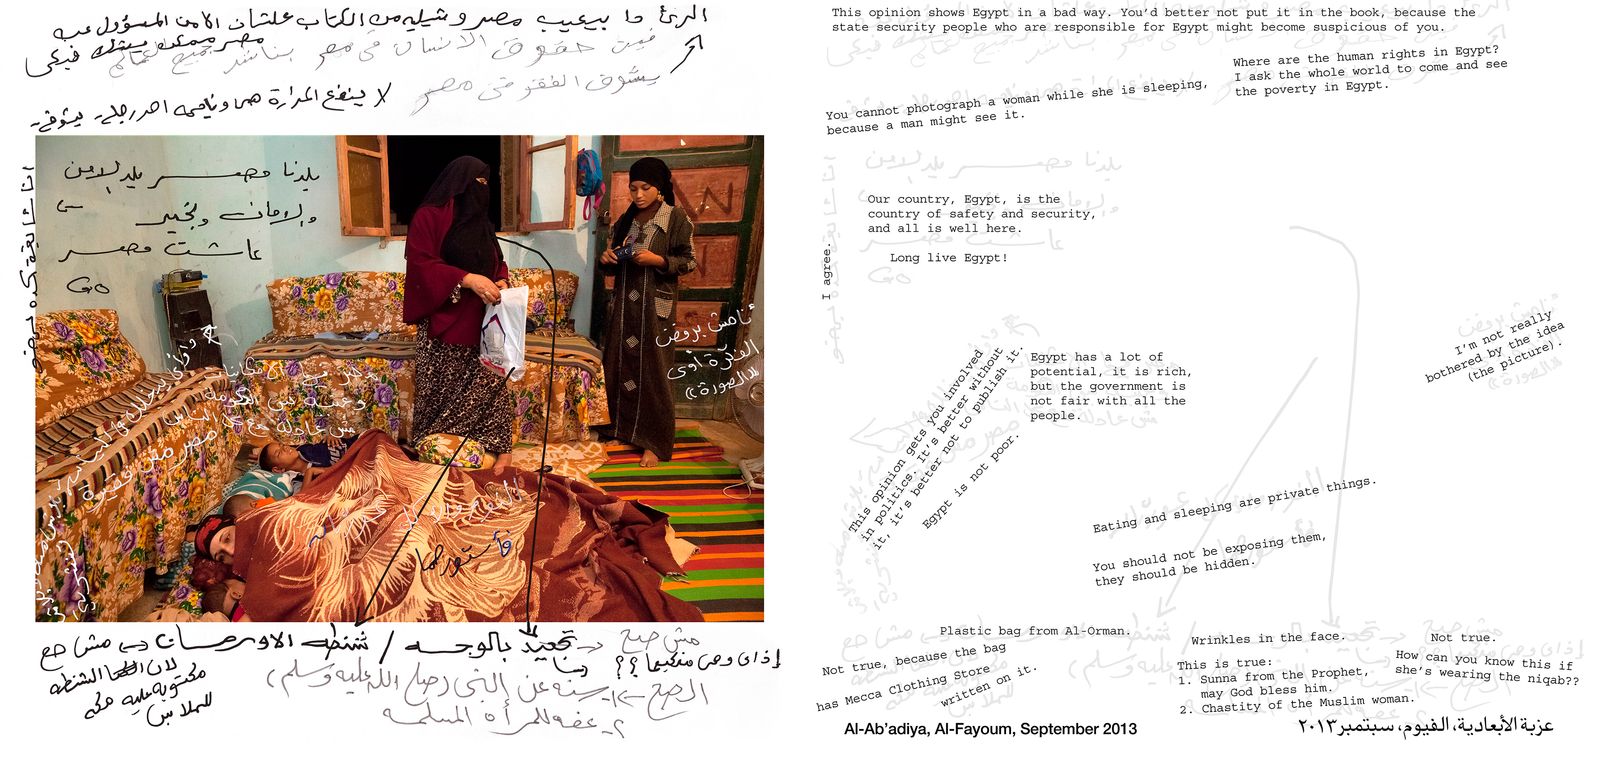 الرئ ما بيعيب مصر وشيله من الكتاب علشان الامن المسؤول عن
مصر ممكن يشك فيكى
فين حقوق الانسان في مصر بناشد جميع العالم
يشوف الفقر فى مصر
لا ينفع المرارة هما ونايمه احد رجله يشوف
بلدنا مصر بلد الامن
والامان وبخير
عاشت مصر
مصر فيها
وغنية بس الحكومة
مش عادلة مع
مصر مش فقيرة
أنا مش برفض
الفكرة أوى
(الصورة)
النوم والاكل
فأستورهما
شنطه الاورمان → مش صح
لان الشنطه
مكتوبه عليه مكه
للملابس
تجعيد بالوجه → مش صح
إذاى وهى منتقبها ؟؟
الصح → ١. سنه عن النبى (صلى الله عليه وسلم)
٢. عفه للمرأة المسلمه
This opinion shows Egypt in a bad way. You'd better not put it in the book, because the
state security people who are responsible for Egypt might become suspicious of you.
Where are the human rights in Egypt?
I ask the whole world to come and see
the poverty in Egypt.
You cannot photograph a woman while she is sleeping,
because a man might see it.
I agree.
Our country, Egypt, is the
country of safety and security,
and all is well here.
Long live Egypt!
I'm not really
bothered by the idea
(the picture).
This opinion gets you involved
in politics. It's better without
it, it's better not to publish it.
Egypt is not poor.
Egypt has a lot of
potential, it is rich,
but the government is
not fair with all the
people.
Eating and sleeping are private things.
You should not be exposing them,
they should be hidden.
Plastic bag from Al-Orman.
Not true, because the bag
has Mecca Clothing Store
written on it.
Wrinkles in the face.
Not true.
How can you know this if
she's wearing the niqab??
This is true:
1. Sunna from the Prophet,
may God bless him.
2. Chastity of the Muslim woman.
Al-Ab'adiya, Al-Fayoum, September 2013
عزبة الأبعادية، الفيوم، سبتمبر ٢٠١٣